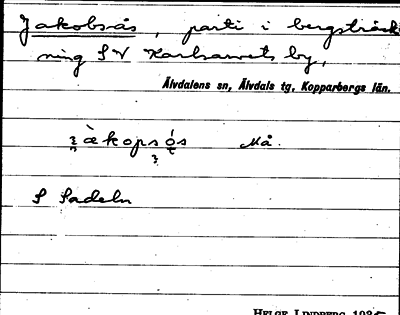 Jakobsås, parti i bergsträck
ning SV Karlsarvets by,
Älvdalens sn, Älvdals tg, Kopparbergs län.
Må.
S Sadeln
HELGE LINDBERG 1935